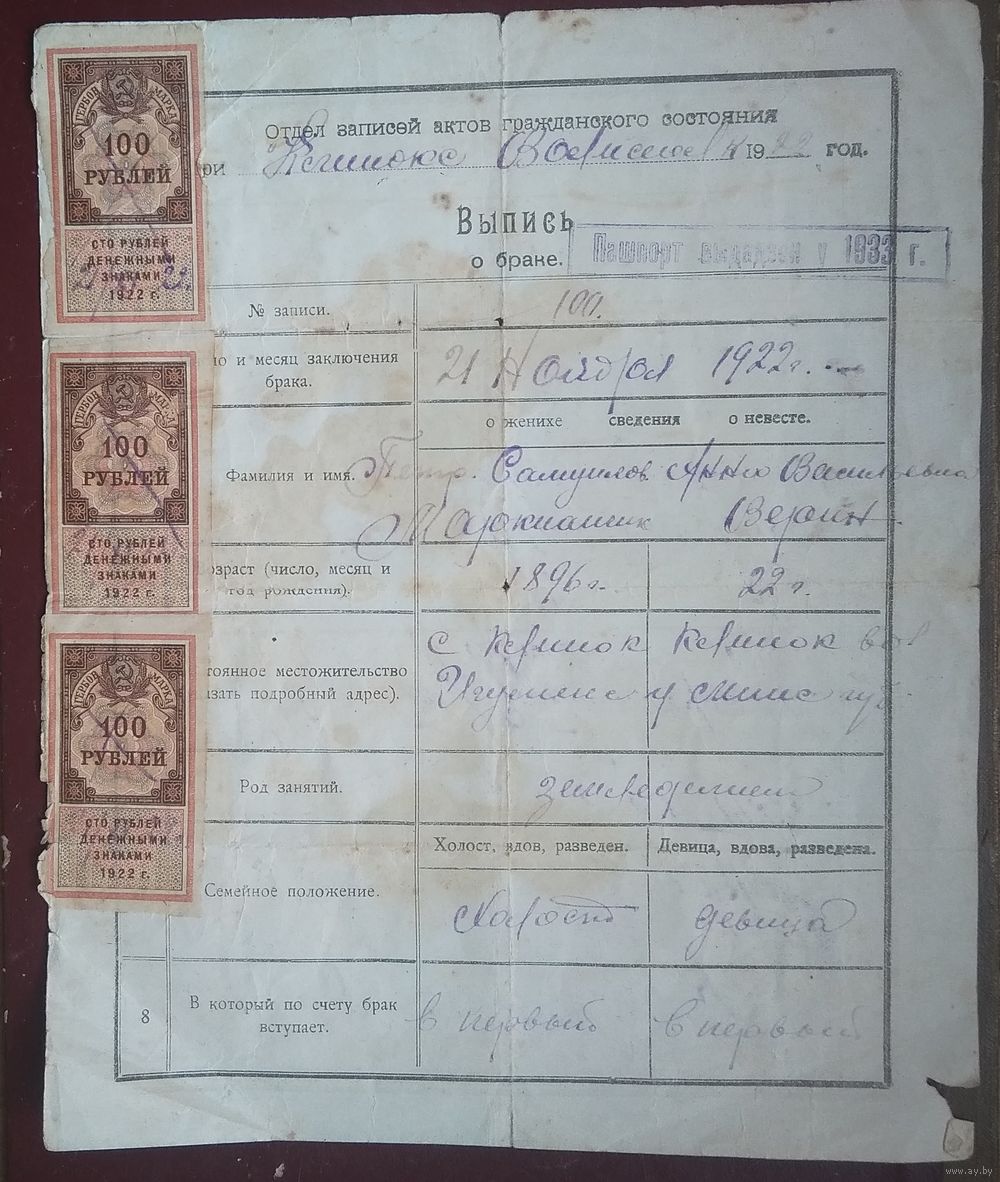 Отдел записей актов гражданского состояния
ри 19 22 год.
Выпись
о браке.
Пашпорт выдадзен у 1933 г.
ГЕРБОВ. МАРКА
100
РУБЛЕЙ
СТО РУБЛЕЙ
ДЕНЕЖНЫМИ
ЗНАКАМИ
1922 г.
ГЕРБОВ. МАРКА
100
РУБЛЕЙ
СТО РУБЛЕЙ
ДЕНЕЖНЫМИ
ЗНАКАМИ
1922 г.
ГЕРБОВ. МАРКА
100
РУБЛЕЙ
СТО РУБЛЕЙ
ДЕНЕЖНЫМИ
ЗНАКАМИ
1922 г.
№ записи. 100.
ло и месяц заключения
брака.
21 Ноября 1922 г.
о женихе сведения о невесте.
Фамилия и имя.
Петр. Самуилов Анна Васильевна
озраст (число, месяц и
год рождения).
1896 г. 22 г.
тоянное местожительство
зать подробный адрес).
Род занятий.
Холост, вдов, разведен. Девица, вдова, разведена.
Семейное положение.
холост девица
8 В который по счету брак
вступает.
в первый в первый
www.ay.by